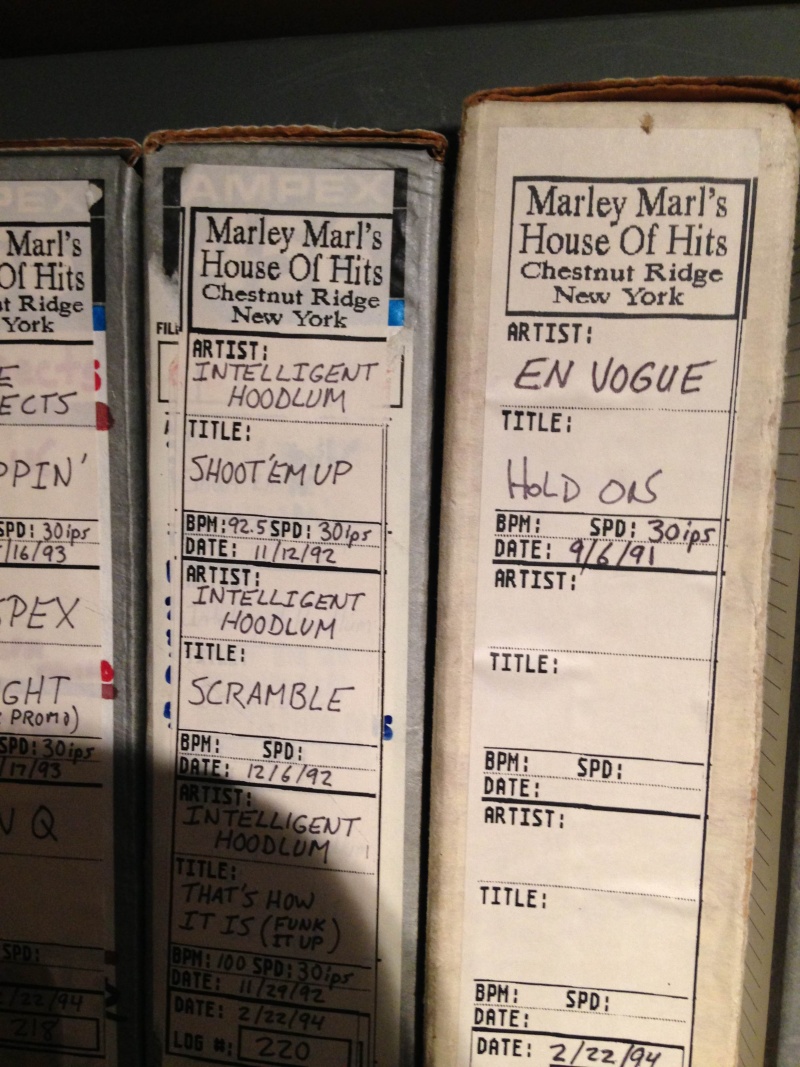 PEX
Marl's
Of Hits
t Ridge
York
E
ECTS
PPIN'
SPD: 30ips
/16/93
SPEX
GHT
PROMO)
SPD: 30ips
/17/93
N Q
SPD:
2/22/94
218
AMPEX
Marley Marl's
House Of Hits
Chestnut Ridge
New York
FIL
ARTIST:
INTELLIGENT
HOODLUM
TITLE:
SHOOT'EM UP
BPM:92.5 SPD: 30ips
DATE: 11/12/92
ARTIST:
INTELLIGENT
HOODLUM
TITLE:
SCRAMBLE
BPM: SPD:
DATE: 12/6/92
ARTIST:
INTELLIGENT
HOODLUM
TITLE:
THAT'S HOW
IT IS (FUNK
IT UP)
BPM: 100 SPD: 30ips
DATE: 11/29/92
DATE: 2/22/94
LOG #: 220
Marley Marl's
House Of Hits
Chestnut Ridge
New York
ARTIST:
EN VOGUE
TITLE:
HOLD ON
BPM: SPD: 30ips
DATE: 9/6/91
ARTIST:
TITLE:
BPM: SPD:
DATE:
ARTIST:
TITLE:
BPM: SPD:
DATE:
DATE: 2/22/94